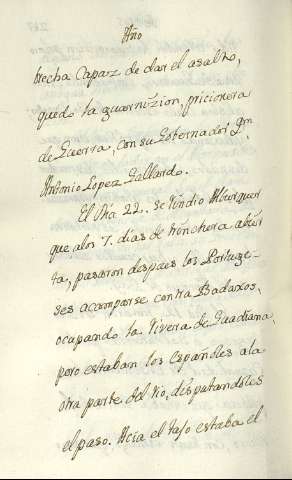 Año
brecha Capaz de dar el asalto,
quedo la guarnizion, pricionera
de Guerra, con su Gobernador Dn.
Antonio Lopez Gallardo.
El Dia 22. se rindio Alburquer
que, alos 7. dias de trinchera abier
ta, pasaron despues los Portugue-
ses acamparse contra Badaxos,
ocupando la rivera de Guadiana,
pero estaban los Españoles ala
otra parte del rio, disputandoles
el paso. Acia el tajo estaba el